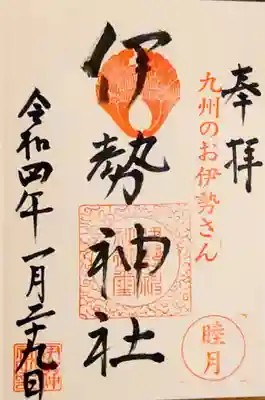 奉拝
九州のお伊勢さん
睦月
伊勢神社
令和四年一月二十九日